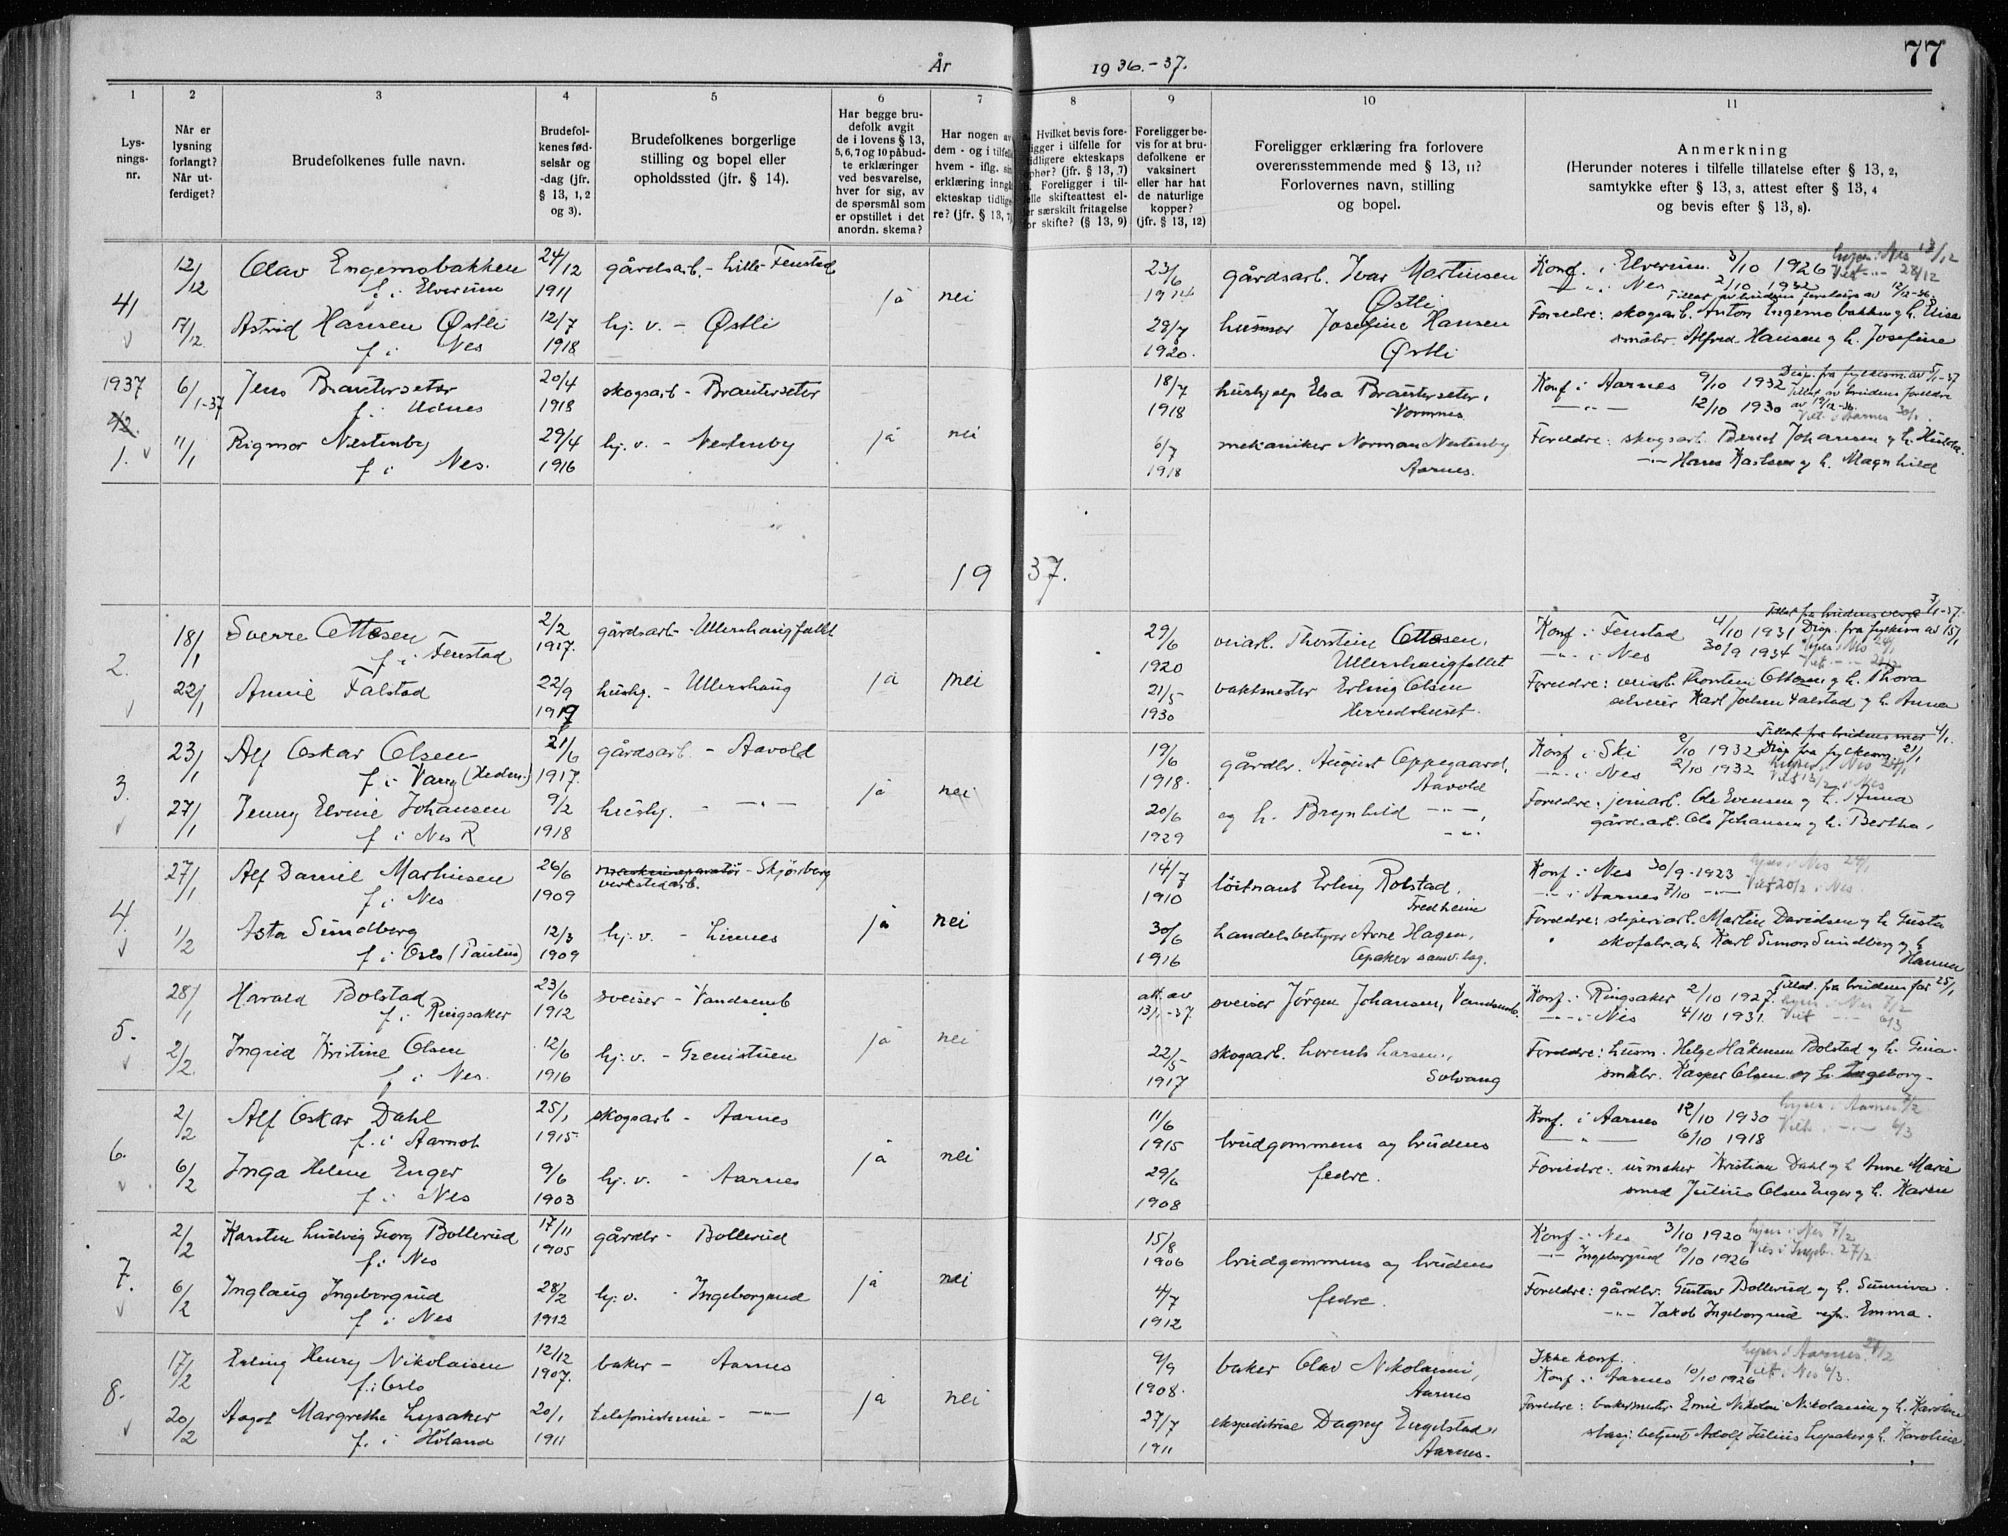 77
År 1936.-37.
1 2 3 4 5 6 7 8 9 10 11
Lys-
nings-
nr.
Når er
lysning
forlangt?
Når ut-
ferdiget?
Brudefolkenes fulle navn.
Brudefol-
kenes fød-
selsår og
-dag (jfr.
§ 13, 1, 2
og 3).
Brudefolkenes borgerlige
stilling og bopel eller
opholdssted (jfr. § 14).
Har begge bru-
defolk avgit
de i lovens § 13,
5, 6, 7 og 10 påbud-
te erklæringer
ved besvarelse,
hver for sig, av
de spørsmål som
er opstillet i det
anordn. skema?
Har nogen av
dem - og i tilfelle
hvem - iflg. sin
erklæring inngå
ekteskap tidlige-
re? (jfr. § 13, 7)
Hvilket bevis fore-
ligger i tilfelle for
tidligere ekteskaps
ophør? (jfr. § 13, 7)
Foreligger i til-
felle skifteattest el-
ler særskilt fritagelse
for skifte? (§ 13, 9)
Foreligger be-
vis for at bru-
defolkene er
vaksinert
eller har hat
de naturlige
kopper?
(jfr. § 13, 12)
Foreligger erklæring fra forlovere
overensstemmende med § 13, 11?
Forlovernes navn, stilling
og bopel.
Anmerkning
(Herunder noteres i tilfelle tillatelse efter § 13, 2,
samtykke efter § 13, 3, attest efter § 13, 4
og bevis efter § 13, 8).
41
12/12 Olav Engemobakken 24/12 gårdsarb. - Lille-Fenstad 23/6 gårdsarb. Ivar Martinsen Konf. i Elverum 3/10 1926
f. i Elverum 1911 ja nei 1914 Østli - " - i Nes 2/10 1932
17/12 Astrid Hansen Østli 12/7 hj. v. - Østli 28/7 husmor Josefine Hansen Foreldre: skogsarb. Anton Engemobakken og h. Elise
f. i Nes 1918 1920. Østli småbr. Alfred Hansen og h. Josefine
1937 6/1-37 Jens Brauterseter 20/4 skogsarb - Brauterseter 18/7 hushjelp Elsa Brauterseter, Konf i Aarnes 9/10 1932 Disp. fra fylkesm av 5/1-37
42. f. i Udnes 1918 1918 Vormnes - " - 12/10 1930
1. 11/1 Rigmor Nestenby 29/4 hj. v. - Nestenby ja nei 6/7 mekaniker Norman Nestenby Foreldre: skogsarb. Bernt Johansen og h. Hulda.
f. i Nes. 1916 1918 Aarnes. - " - Hans Karlsen og h. Magnhild
1937.
2. 18/1 Sverre Ottesen 2/2 gårdsarb - Ullershaugfallet 29/6 veiarb. Thorstein Ottesen, Konf i Fenstad 4/10 1931 Disp. fra fylkesm av 15/1
f. i Fenstad 1917. 1920 Ullershaugfallet - " - i Nes 30/9 1934
22/1 Annie Falstad 22/9 hushj. - Ullershaug ja nei 21/5 vaktmester Erling Olsen Foreldre: veiarb. Thorstein Ottesen og h. Thora
1919 1930 Herredshuset. selveier Karl Joelsen Falstad og h. Anna
3. 23/1 Alf Oskar Olsen 21/6 gårdsarb - Aavold 19/6 gårdbr. August Oppegaard, Konf i Ski 2/10 1932 Disp fra fylkesm 21/1
f. i Vang (Hedem.) 1917. ja nei 1918. Aavold - " - i Nes 2/10 1932
27/1 Jenny Elvine Johansen 9/2 hushj. - " - 20/6 og h. Brynhild - " - Foreldre: jernarb. Ole Evensen og h. Anna
f. i Nes R 1918 1929 gårdsarb. Ole Johansen og h. Bertha,
4. 27/1 Alf Daniel Martinsen 26/6 verkstedarb. - Skjørberg 14/7 løitnant Erling Rolstad, Konf. i Nes 30/9-1923
f. i Nes 1909 1910 Fredheim - " - i Aarnes 7/10 - " - Viet 20/2 i Nes.
1/2 Asta Sundberg 12/3 hj. v. - Linnes ja nei 30/6 handelsbestyrer Arne Hagen, Foreldre: sliperiarb. Martin Davidsen og h. Gusta
f. i Oslo (Paulus) 1909 1916 Opaker samv.lag. skofabr.arb. Karl Simon Sundberg og h. Hanna
5. 28/1 Harald Bolstad 23/6 sveiser - Vandsemb att. av sveiser Jørgen Johansen, Vandsemb. Konf. i Ringsaker 2/10 1927. Tillat. fra brudens far 25/1
f. i Ringsaker 1912 13/1-37 - " - i Nes 4/10 1931.
2/2 Ingrid Kristine Olsen 12/6 hj. v. - Grenistuen ja nei 22/5 skogsarb. Lorents Larsen, Foreldre: husm. Helge Håkensen Bolstad og h. Gina.
f. i Nes. 1916 1917 Solvang småbr. Kasper Olsen og h. Ingeborg -
6. 2/2 Alf Oskar Dahl 25/1 skogsarb - Aarnes 11/6 Konf. i Aarnes 12/10 1930
f. i Aamot 1915 1915 brudgommens og brudens - " - 6/10 1918
6/2 Inga Helene Enger 9/6 hj. v. - Aarnes ja nei 29/6 fedre. Foreldre: urmaker Kristian Dahl og h. Anne Marie
f. i Nes 1903 1908 smed Julius Olsen Enger og h. Karen
7. 2/2 Karsten Ludvig Georg Bollerud 17/11 gårdbr - Bollerud 15/8 Konf. i Nes 3/10 1920 Lyser i Nes 7/2
f. i Nes 1905 1906 brudgommens og brudens - " - Ingeborgrud 10/10 1926 Vies i Ingeb. 27/2
6/2 Inglaug Ingeborgrud 28/2 hj. v. - Ingeborgrud ja nei 4/7 fedre. Foreldre: gårdbr. Gustav Bollerud og h. Sunniva.
f. i Nes 1912 1912 - " - Jakob Ingeborgrud og h. Emma.
8. 17/2 Erling Henry Nikolaisen 12/12 baker - Aarnes 9/9 baker Olav Nikolaisen, Ikke konf.
f. i Oslo 1907. 1908. Aarnes Konf. i Aarnes 10/10 1926 Viet i Nes 6/3.
20/2 Aagot Margrethe Lysaker 20/1 telefonistinne - " - ja nei 27/7 ekspeditrise Dagny Engelstad, Foreldre: bakermester Emil Nikolai Nikolaisen og h. Karoline
f. i Høland 1911 1911 Aarnes. stasj. betjent Adolf Julius Lysaker og h. Karoline